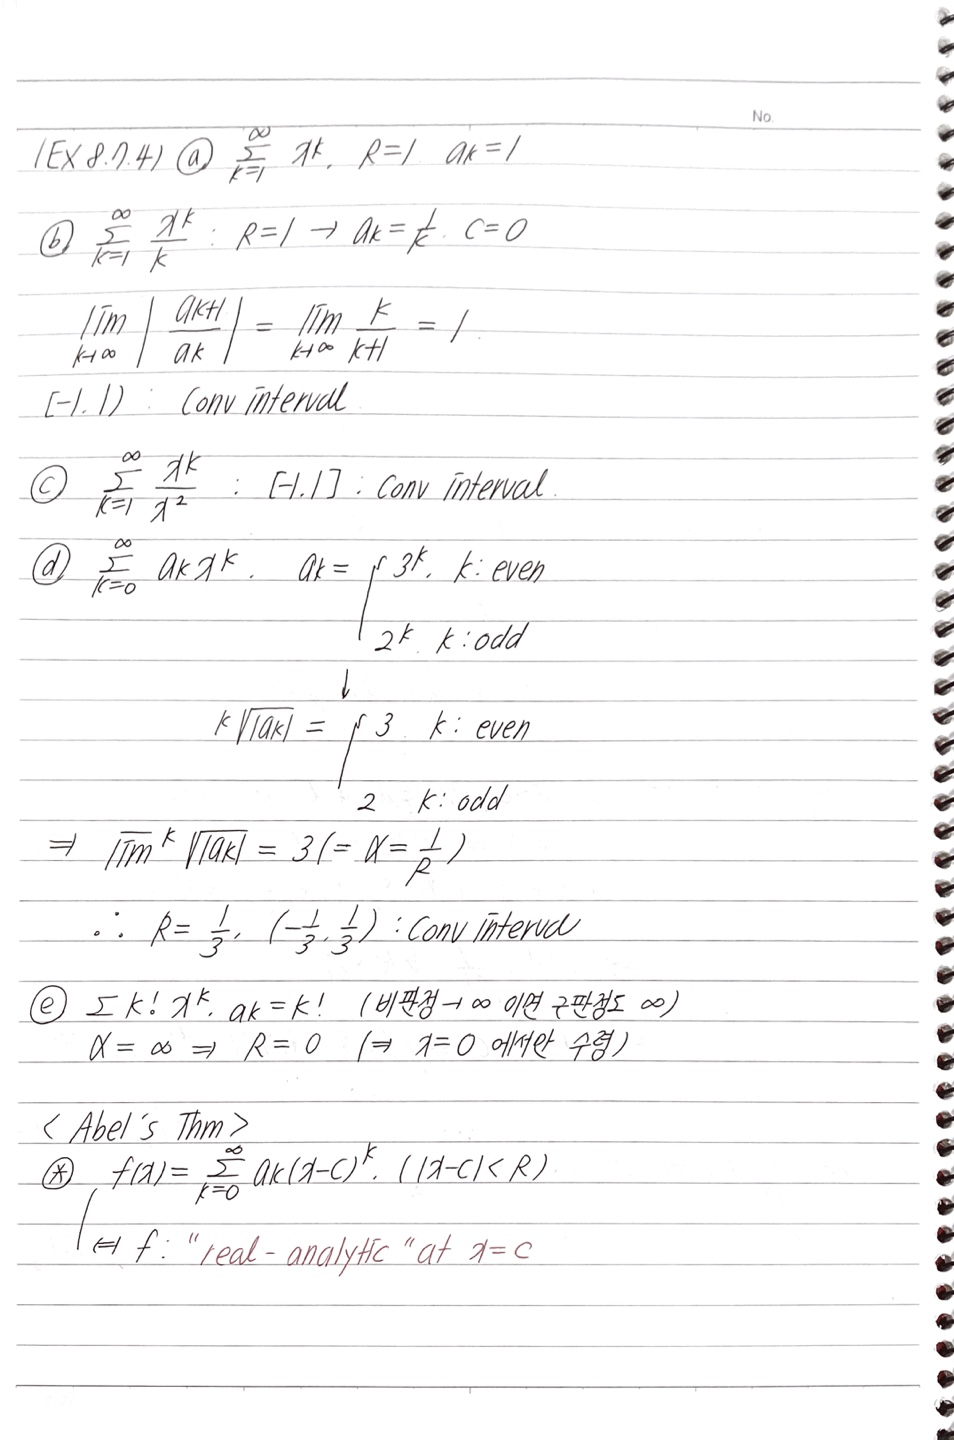 No.
(EX 8.7.4) ⓐ ∑_{k=1}^{∞} x^k. R=1 ak=1
ⓑ ∑_{k=1}^{∞} x^k/k : R=1 → ak=1/k. C=0
lim_{k→∞} |ak+1/ak| = lim_{k→∞} k/k+1 = 1.
[-1.1) : Conv interval
ⓒ ∑_{k=1}^{∞} x^k/x^2 : [-1.1] : Conv interval.
ⓓ ∑_{k=0}^{∞} ak x^k. ak = { 3^k. k: even
2^k. k: odd
↓
k√|ak| = { 3. k: even
2 k: odd
⇒ l̅i̅m̅ k√|ak| = 3 (= α = 1/R)
∴ R = 1/3. (-1/3. 1/3) : Conv interval
ⓔ ∑ k! x^k. ak = k! (비판정→∞ 이면 근판정도 ∞)
α = ∞ ⇒ R = 0 (⇒ x=0 에서만 수렴)
< Abel's Thm >
⊛ f(x) = ∑_{k=0}^{∞} ak(x-c)^k. (|x-c|<R)
⇔ f: "real-analytic" at x=c